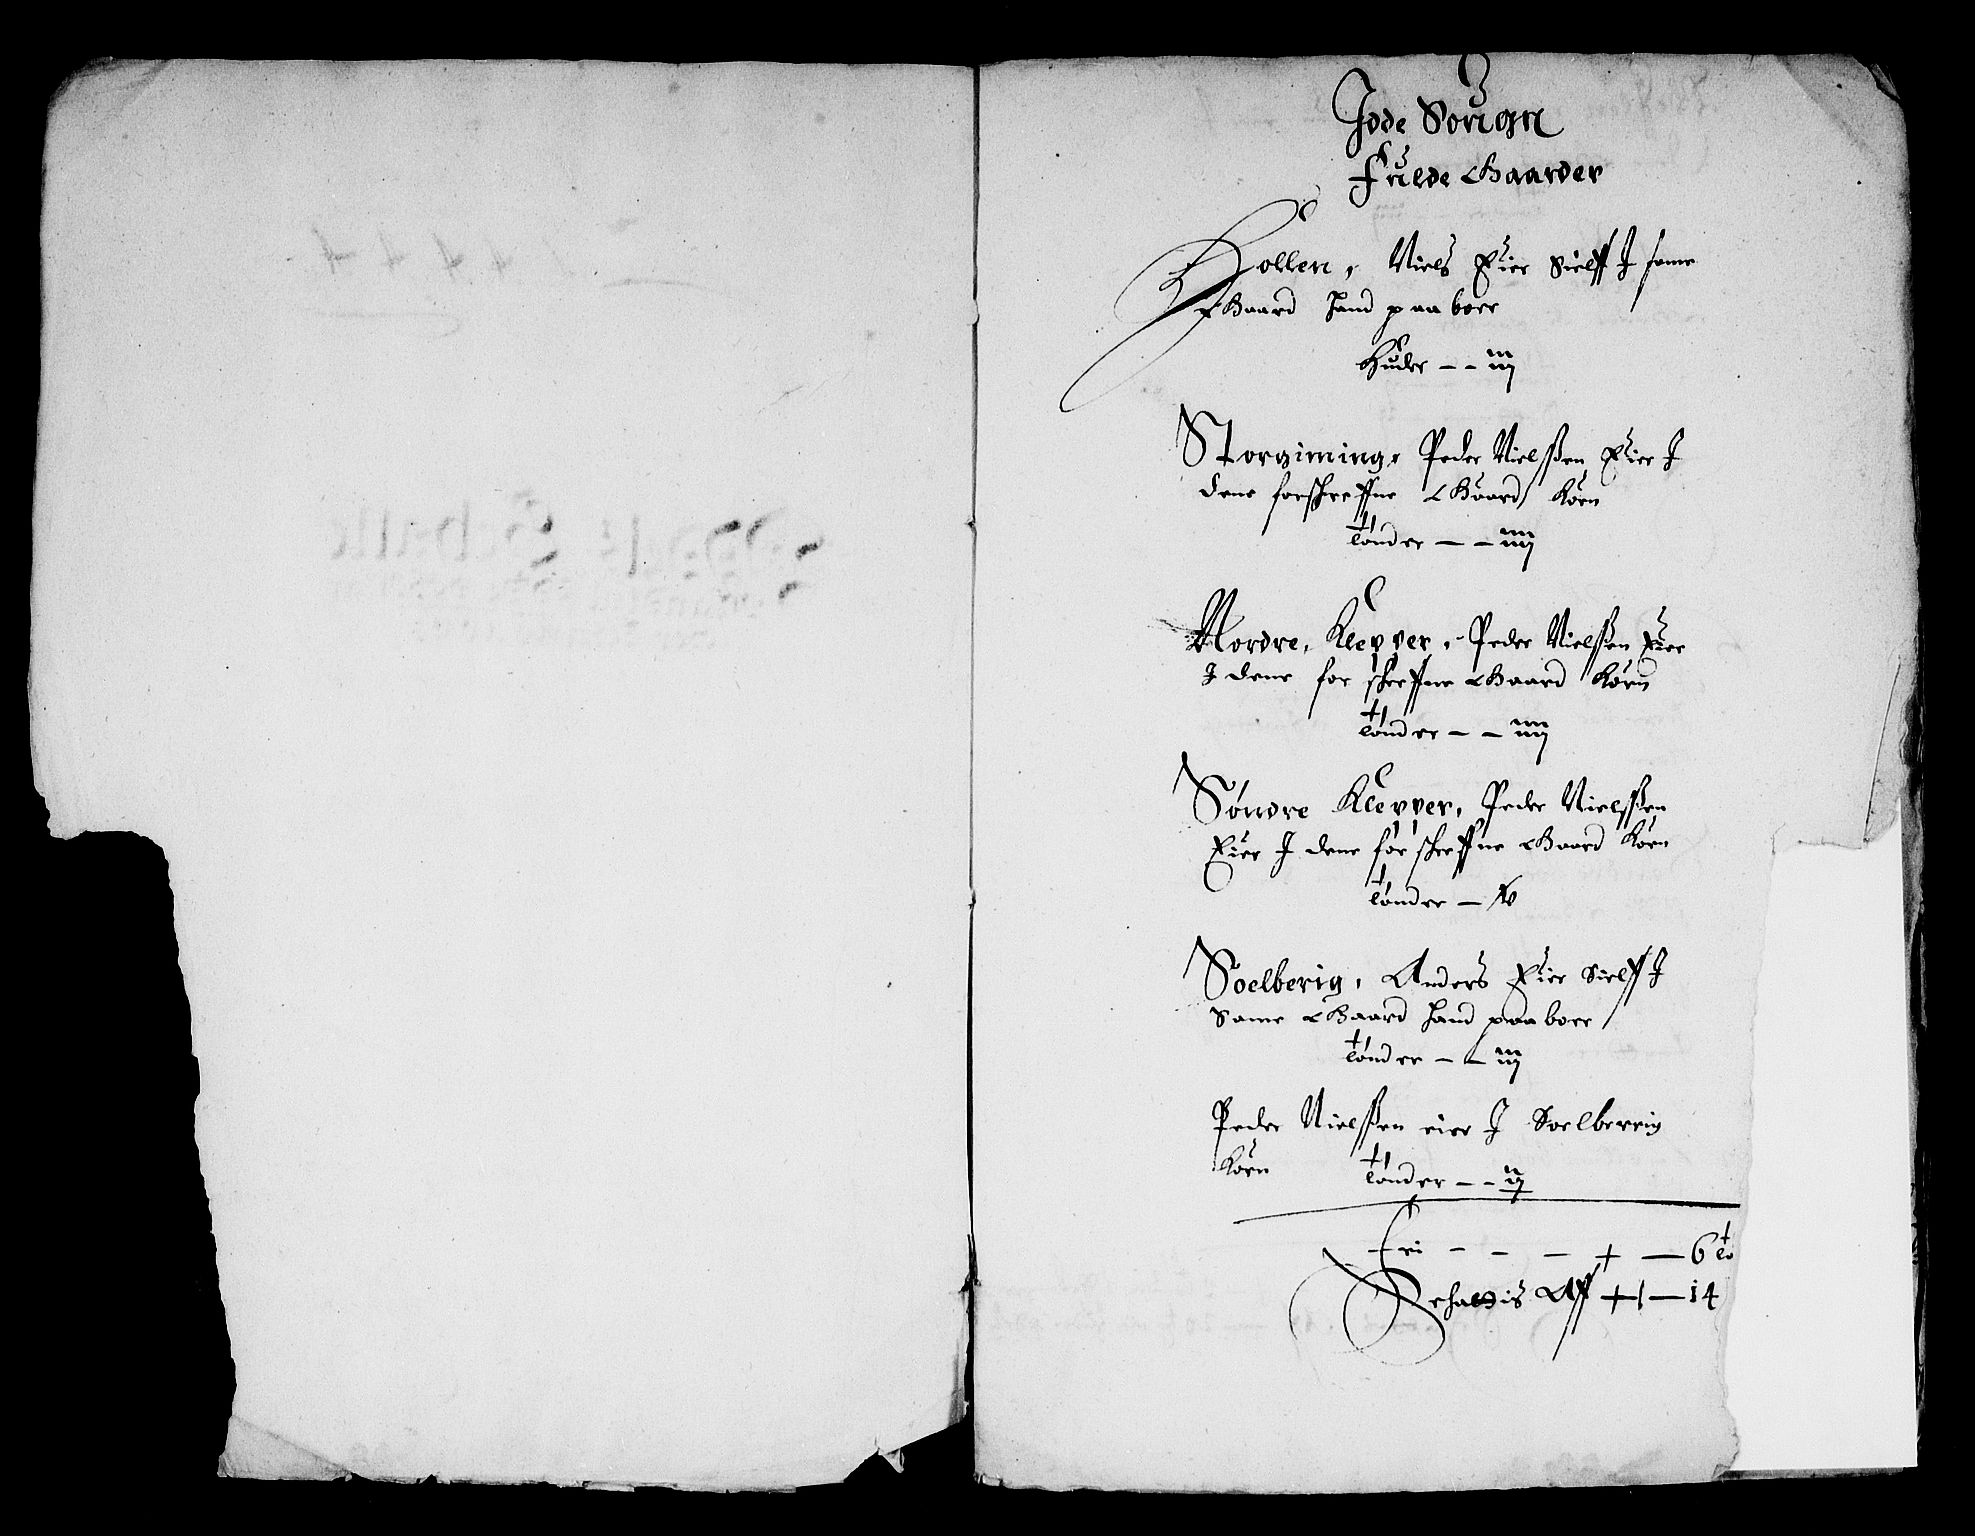 Jdde Sougn
Fulde Gaarder
Hollen, Niels Eier Sielff J same
Gaard hand paa boer
Huder - - iij
Storgiming, Peder Nielßen Eier J
dene forschreffne Gaard Korn
tønder - - iiij
Nordre, Klepper, Peder Nielßen Eier
J dene for schreffne Gaard Korn
tønder - - iiij
Søndre Klepper, Peder Nielßen
Eier J dene for schreffne Gaard Korn
tønder -
Soelberig, Anders Eier Sielff J
Same Gaard hand paa boer
tønder - - iij
Peder Nielßen eier J Soelberrig
Korn tønder - - ij
Fri - - - + - 6 tø
Aff - 14